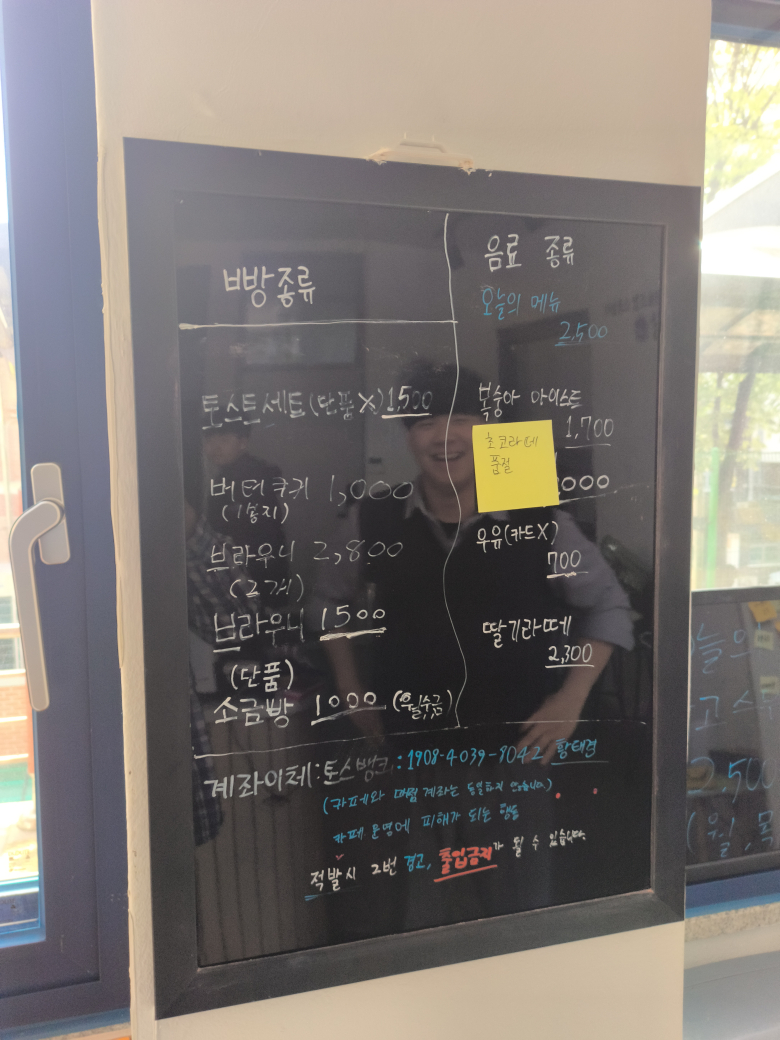 빵종류
토스트세트(단품X) 1,500
버터쿠키 1,000
(1봉지)
브라우니 2,800
(2개)
브라우니 1500
(단품)
소금빵 1000 (월,수,금)
음료 종류
오늘의 메뉴
2,500
복숭아 아이스트
1,700
초코라떼
품절
000
우유(카드X)
700
딸기라떼
2,300
계좌이체:토스뱅크:1908-4039-9042 황태경
(카페와 매점 계좌는 동일하지 않습니다)
카페 운영에 피해가 되는 행동
적발시 2번 경고, 출입금지가 될 수 있습니다.
늘의
고스
2,500
(월,목